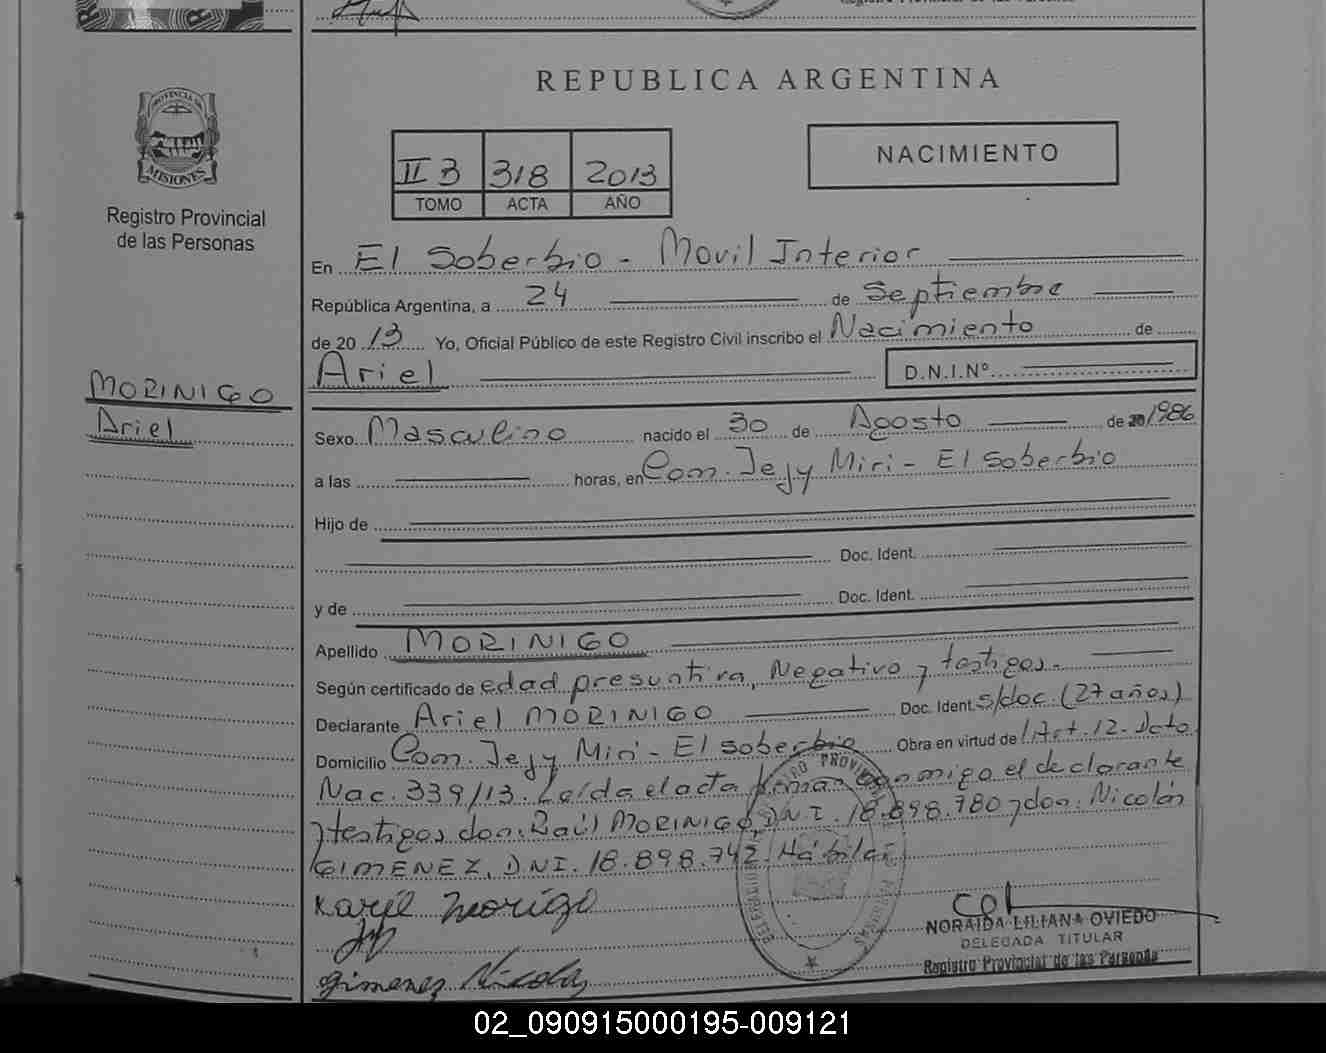 REPUBLICA ARGENTINA
PROVINCIA DE
MISIONES
Registro Provincial
de las Personas
II 3 318 2013
TOMO ACTA AÑO
NACIMIENTO
En El Soberbio - Movil Interior
República Argentina, a 24 de Septiembre
de 20 13 Yo, Oficial Público de este Registro Civil inscribo el Nacimiento de
Ariel D.N.I.Nº
MORINIGO
Ariel
Sexo Masculino nacido el 30 de Agosto de 1986
a las horas, en Com. Jejy Miri - El Soberbio
Hijo de
Doc. Ident.
y de Doc. Ident.
Apellido MORINIGO
Según certificado de edad presuntiva, Negativo y testigos.
Declarante Ariel MORINIGO Doc. Ident. s/doc. (27 años)
Domicilio Com. Jejy Miri - El Soberbio Obra en virtud de Art. 12. Dcto
Nac. 339/13. Leída el acta firman conmigo el declarante
y testigos don: Raúl MORINIGO, DNI. 18.898.780 y don: Nicolás
GIMENEZ, DNI. 18.898.742. Hábiles
gimenez Nicolas
NORAIDA LILIANA OVIEDO
DELEGADA TITULAR
Registro Provincial de las Personas
02_090915000195-009121